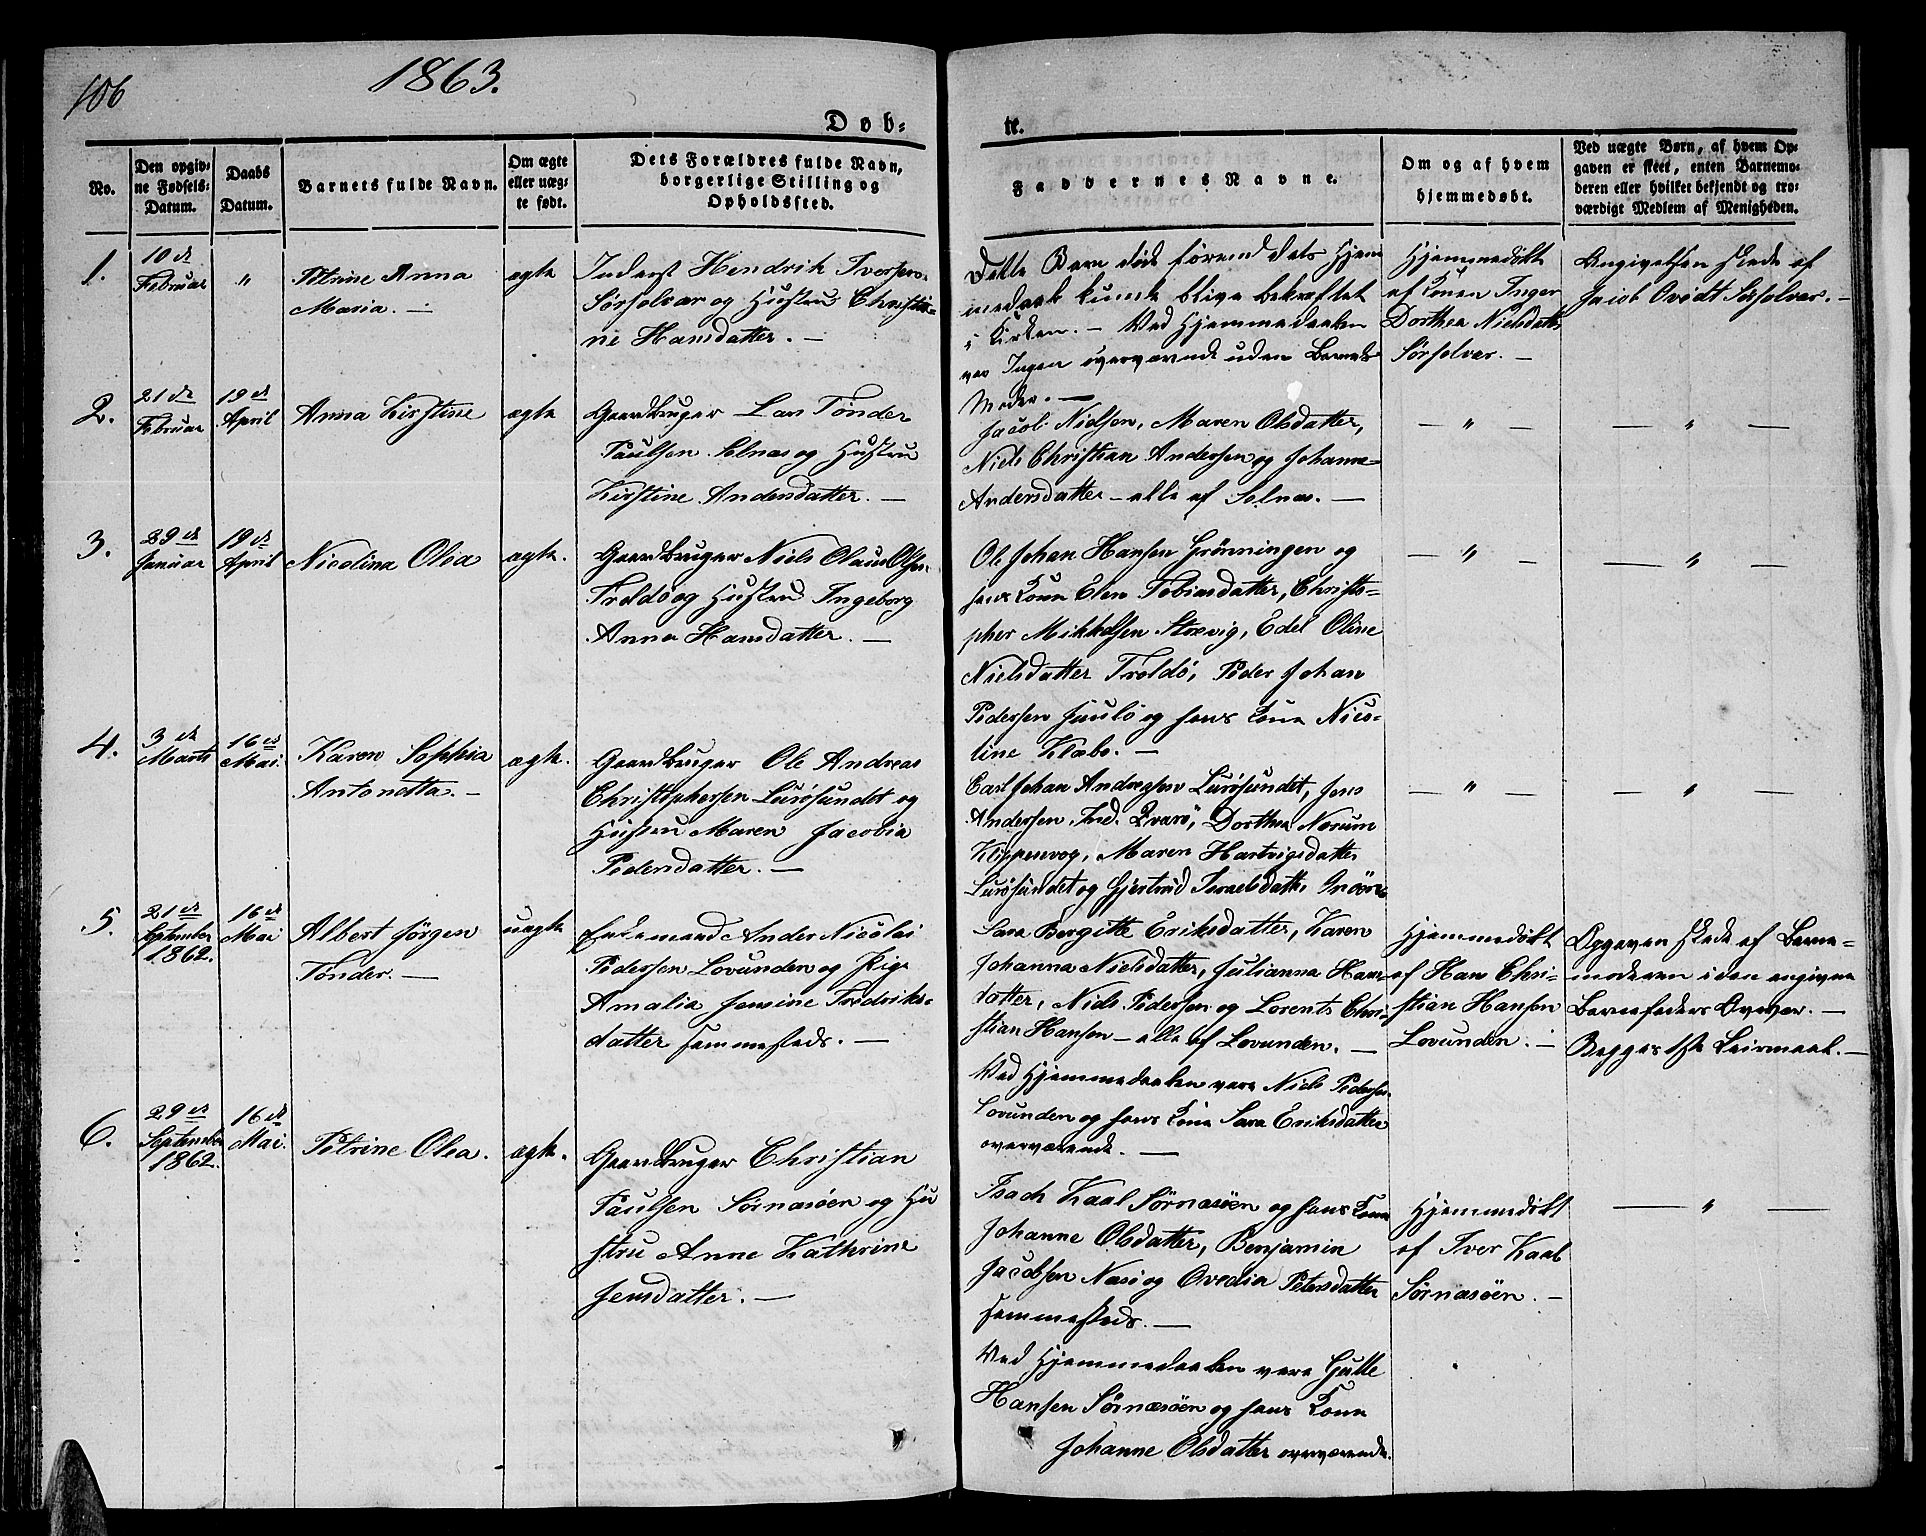 106
1863.
Døb-
te.
No.
Den opgiv-
ne Fødsels-
Datum.
Daabs
Datum.
Barnets fulde Navn.
Om ægte
eller uæg-
te født.
Dets Forældres fulde Navn,
borgerlige Stilling og
Opholdssted.
Faddernes Navne.
Om og af hvem
hjemmedøbt.
Ved uægte Børn, af hvem Op-
gaven er skeet, enten Barnemo-
deren eller hvilket bekjendt og tro-
værdigt Medlem af Menigheden.
1.
10de
Februar
"
Petrine Anna
Maria. —
ægte
Inderst Hendrik Iversen
Sørsolvær og Hustru Christia-
ne Hansdatter. —
Dette Barn døde førend dets Hjem
medaab kunde blive bekræftet
i Kirken. — Ved Hjemmedaaben
var Ingen overværende uden Barnets
Moder. —
Hjemmedøbt
af Konen Inger
Dorthea Nielsdatter
Sørsolvær. —
Angivelsen skede af
Jacob Ovedt Sørsolvær. —
2.
21de
Februar
19de
April
Anna Kirstine
ægte
Gaardbruger Lars Tønder
Paulsen Selnæs og Hustru
Kirstine Andersdatter. —
Jacob Nielsen, Maren Olsdatter,
Niels Christian Andersen og Johanna
Andersdatter — alle af Selnæs. —
— " —
— " —
3.
29de
Januar
19de
April
Nicolina Olea
ægte.
Gaardbruger Niels Olaus Olsen
Troldø og Hustru Ingeborg
Anna Hansdatter. —
Ole Johan Hansen Grønningen og
hans Kone Elen Tobiasdatter, Christo-
pher Mikkelsen Storvig, Edel Oline
Nielsdatter Troldø, Peder Johan
Pedersen Huulø og hans Kone Nico-
line Klæbo. —
— " —
— " —
4.
3de
Marts
16de
Mai.
Karen Sophia
Antonetta. —
ægte.
Gaardbruger Ole Andreas
Christophersen Lurøsundet og
Hustru Maren Jacobia
Pedersdatter. —
Carl Johan Andreasen Lurøsundet, Jens
Andersen Ind. Kvarø, Dorthea Norum
Klippenvog, Maren Hartvigsdatter
Lurøsundet og Gjertrud Israelsdatter
— " —
— " —
5.
21de
September
1862.
16de
Mai
Albert Jørgen
Tønder. —
uægte
Enkemand Ander Nicolai
Pedersen Lovunden og Pige
Amalia Jensine Fredriks-
datter sammesteds. —
Sara Bergitte Eriksdatter, Karen
Johanna Nielsdatter, Julianna Hans
datter, Niels Pedersen og Lorents Chri
stian Hansen — alle af Lovunden. —
Ved Hjemmedaaben vare Niels Pedersen
Lovunden og hans Kone Sara Eriksdatter
overværende. —
Hjemmedøbt
af Hans Chri-
stian Hansen
Lovunden. —
Opgaven skede af Barne-
moderen i den angivne
Barnefaders Overvær. —
Begges 1ste Leiermaal. —
6.
29de
September
1862.
16de
Mai.
Petrine Olea.
ægte.
Gaardbruger Christian
Paulsen Sørnæsøen og Hu
stru Anne Kathrine
Jensdatter. —
Isach Kaal Sørnæsøen og hans Kone
Johanne Olsdatter, Benjamin
Jacobsen Næsø og Ovedia Petersdatter
sammesteds. —
Ved Hjemmedaaben vare Gulle
Hansen Sørnæsøen og hans Kone
Johanne Olsdatter overværende.
Hjemmedøbt
af Iver Kaal
Sørnæsøen. —
— " —